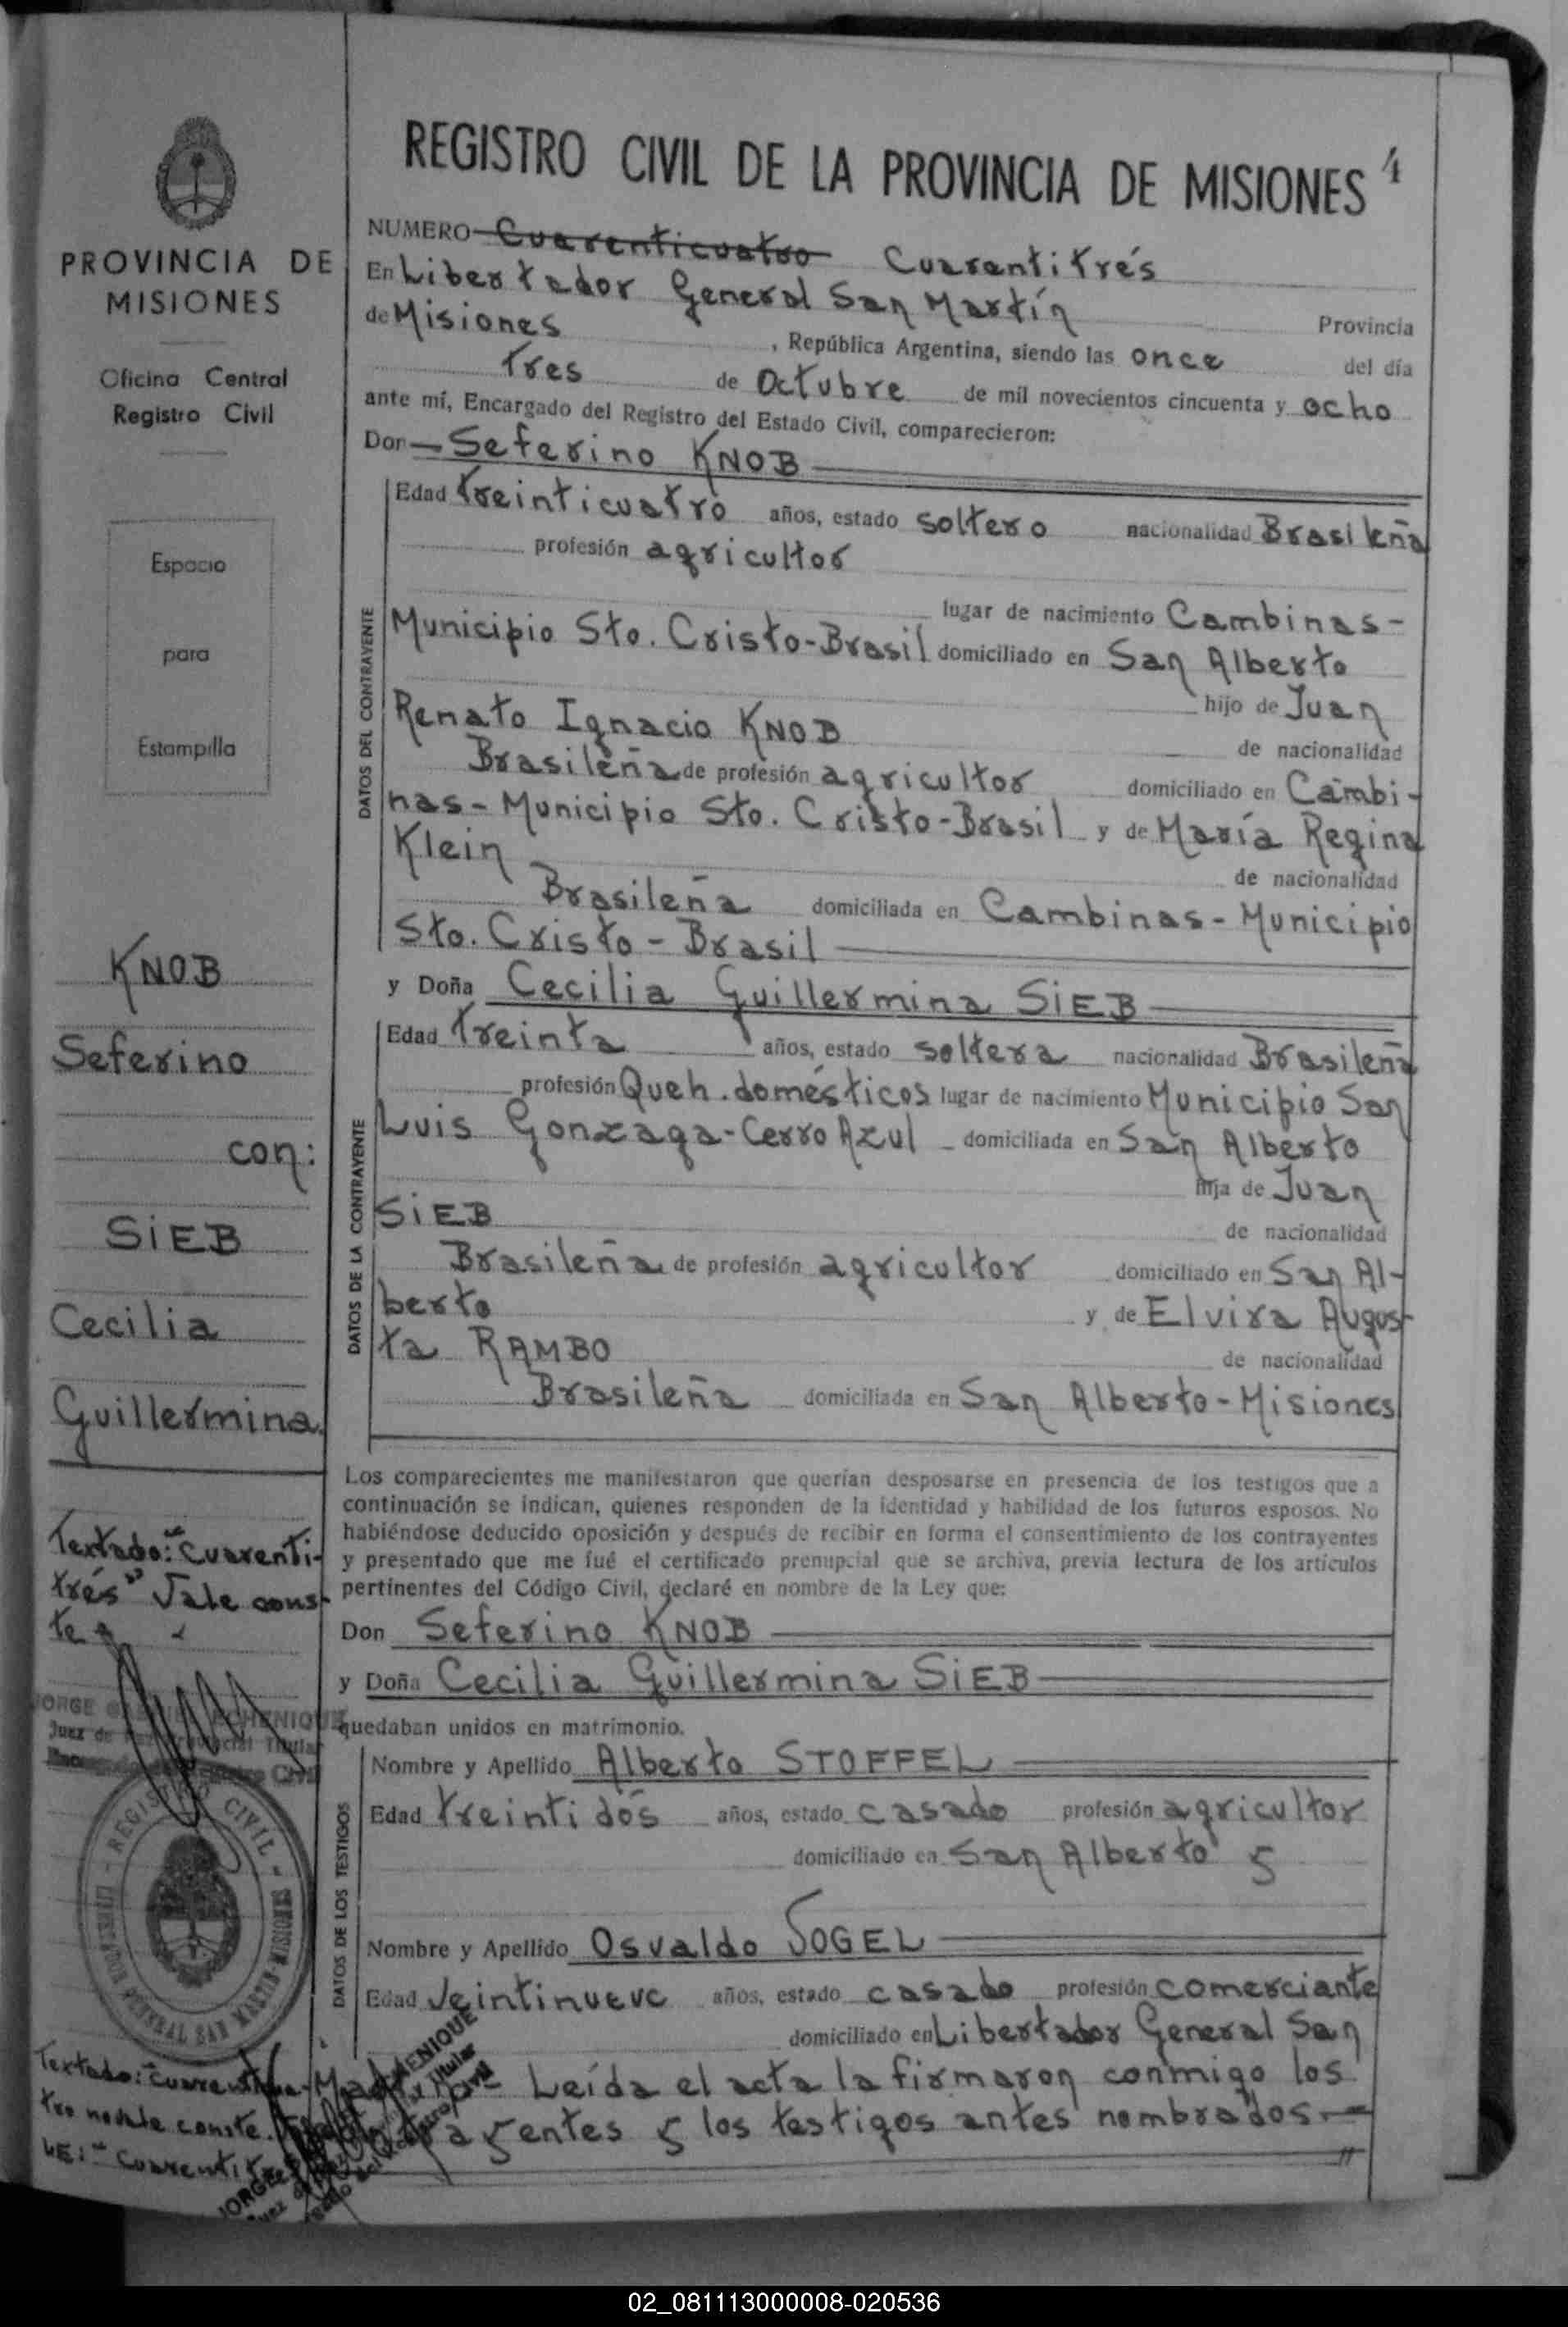 PROVINCIA DE
MISIONES
Oficina Central
Registro Civil
Espacio
para
Estampilla
KNOB
Seferino
con:
SiEB
Cecilia
Guillermina
Textado: "Cuarenti-
trés" Vale cons-
te
JORGE
Juez de
REGISTRO CIVIL
REGISTRO CIVIL DE LA PROVINCIA DE MISIONES
NUMERO Cuarenticuatro Cuarentitrés
En Libertador General San Martín
Provincia
de Misiones , República Argentina, siendo las once del día
tres de Octubre de mil novecientos cincuenta y ocho
ante mí, Encargado del Registro del Estado Civil, comparecieron:
Don Seferino KNOB
DATOS DEL CONTRAYENTE
Edad treinticuatro años, estado soltero nacionalidad Brasileña
profesión agricultor
lugar de nacimiento Cambinas-
Municipio Sto. Cristo-Brasil domiciliado en San Alberto
hijo de Juan
Renato Ignacio KNOB de nacionalidad
Brasileña de profesión agricultor domiciliado en Cambi-
nas-Municipio Sto. Cristo-Brasil y de María Regina
Klein de nacionalidad
Brasileña domiciliada en Cambinas-Municipio
Sto. Cristo-Brasil
y Doña Cecilia Guillermina SiEB
DATOS DE LA CONTRAYENTE
Edad treinta años, estado soltera nacionalidad Brasileña
profesión Queh. domésticos lugar de nacimiento Municipio San
Luis Gonzaga-Cerro Azul domiciliada en San Alberto
hija de Juan
SiEB de nacionalidad
Brasileña de profesión agricultor domiciliado en San Al-
berto y de Elvira Augus-
ta RAMBO de nacionalidad
Brasileña domiciliada en San Alberto-Misiones
Los comparecientes me manifestaron que querían desposarse en presencia de los testigos que a
continuación se indican, quienes responden de la identidad y habilidad de los futuros esposos. No
habiéndose deducido oposición y después de recibir en forma el consentimiento de los contrayentes
y presentado que me fué el certificado prenupcial que se archiva, previa lectura de los artículos
pertinentes del Código Civil, declaré en nombre de la Ley que:
Don Seferino KNOB
y Doña Cecilia Guillermina SiEB
quedaban unidos en matrimonio.
DATOS DE LOS TESTIGOS
Nombre y Apellido Alberto STOFFEL
Edad treintidós años, estado casado profesión agricultor
domiciliado en San Alberto y
Nombre y Apellido Osvaldo VOGEL
Edad Veintinueve años, estado casado profesión comerciante
domiciliado en Libertador General San
Martín.- Leída el acta la firmaron conmigo los
contrayentes y los testigos antes nombrados.-
02_081113000008-020536